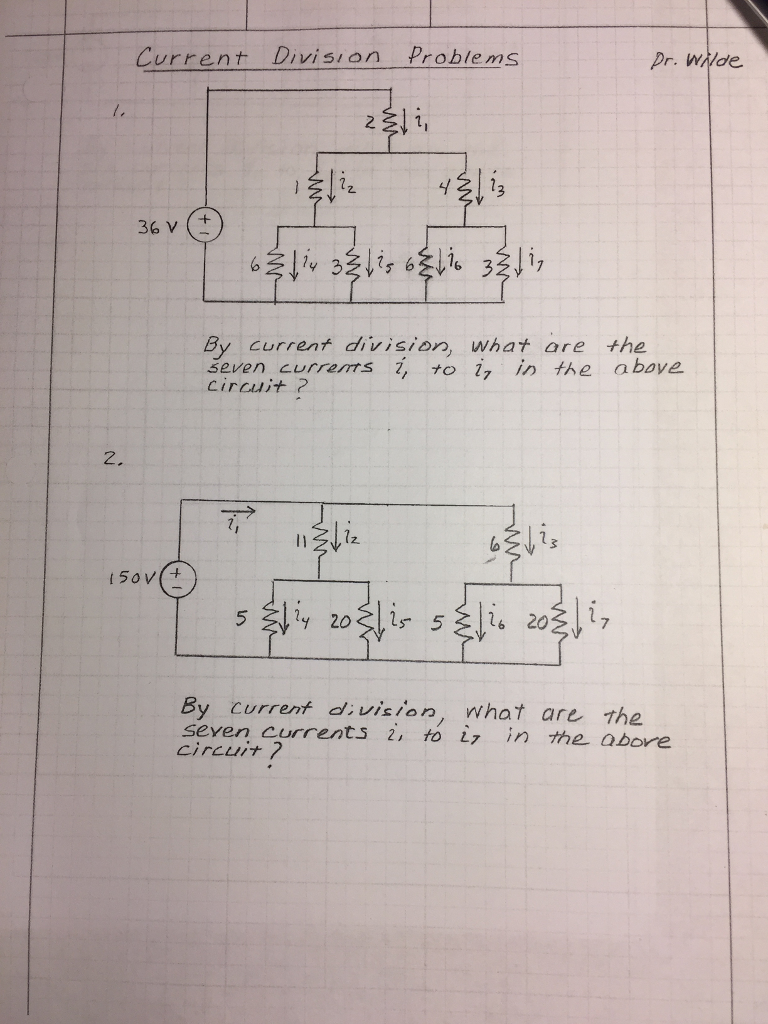 Current Division Problems
Dr. Wilde
1.
2 i₁
1 i₂ 4 i₃
36 V + −
6 i₄ 3 i₅ 6 i₆ 3 i₇
By current division, what are the
seven currents i₁ to i₇ in the above
circuit?
2.
i₁
11 i₂ 6 i₃
150V + −
5 i₄ 20 i₅ 5 i₆ 20 i₇
By current division, what are the
seven currents i₁ to i₇ in the above
circuit?